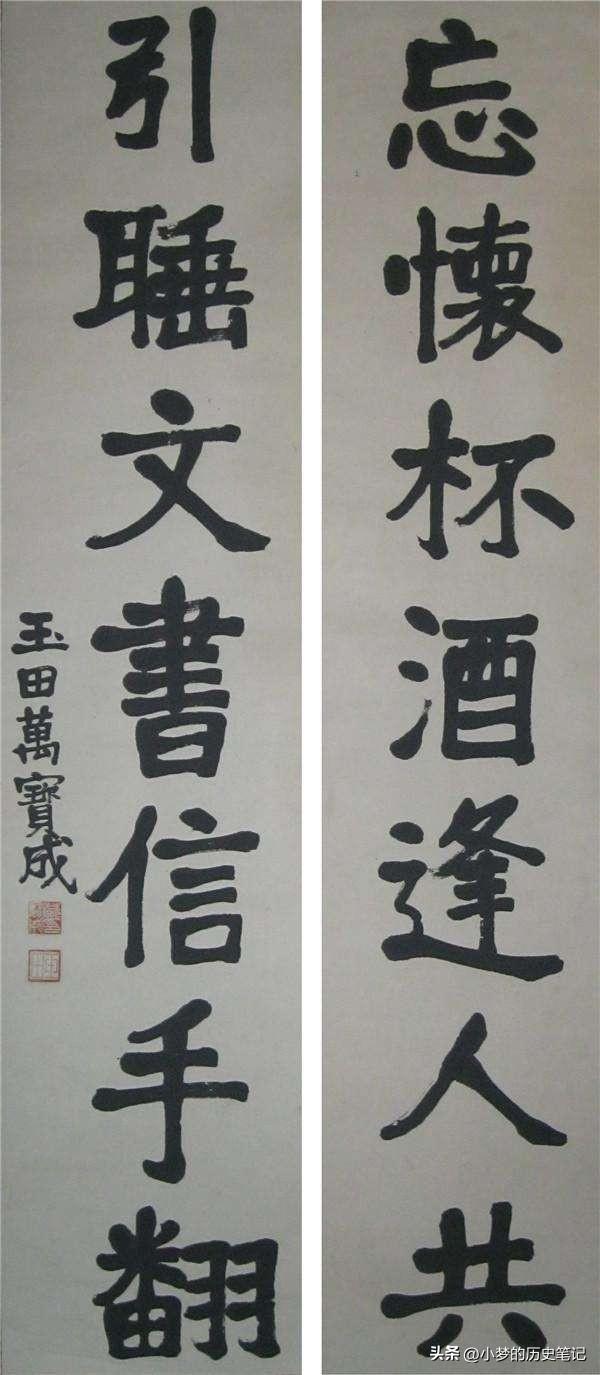 忘懷杯酒逢人共
引睡文書信手翻
玉田萬寶成
头条 @小梦的历史笔记